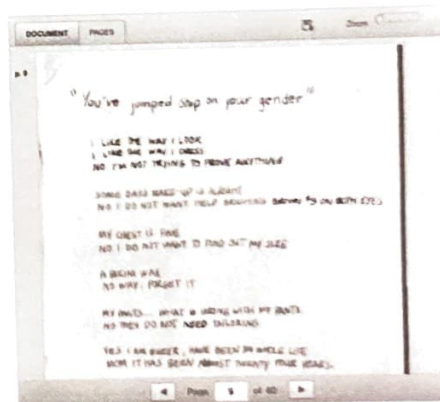 DOCUMENT PAGES
Zoom
p. 9
"You've jumped ship on your gender"
I LIKE THE WAY I LOOK
I LIKE THE WAY I DRESS
NO I'M NOT TRYING TO PROVE ANYTHING
SOME DAYS MAKE-UP IS ALRIGHT
NO I DO NOT WANT HELP #3 ON BOTH EYES
MY CHEST IS FINE
NO I DO NOT WANT TO FIND OUT MY SIZE
A BIKINI WAX
NO WAY, FORGET IT
MY PANTS... WHAT IS WRONG WITH MY PANTS
NO THEY DO NOT NEED TAILORING
YES I AM QUEER, HAVE BEEN MY WHOLE LIFE
MOM IT HAS BEEN ALMOST TWENTY FOUR YEARS.
Page 9 of 60